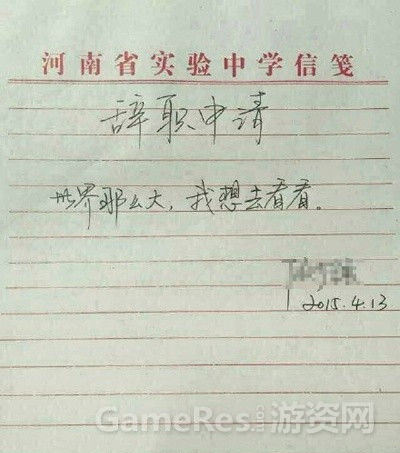 河南省实验中学信笺
辞职申请
世界那么大，我想去看看。
2015.4.13
GameRes.com游资网